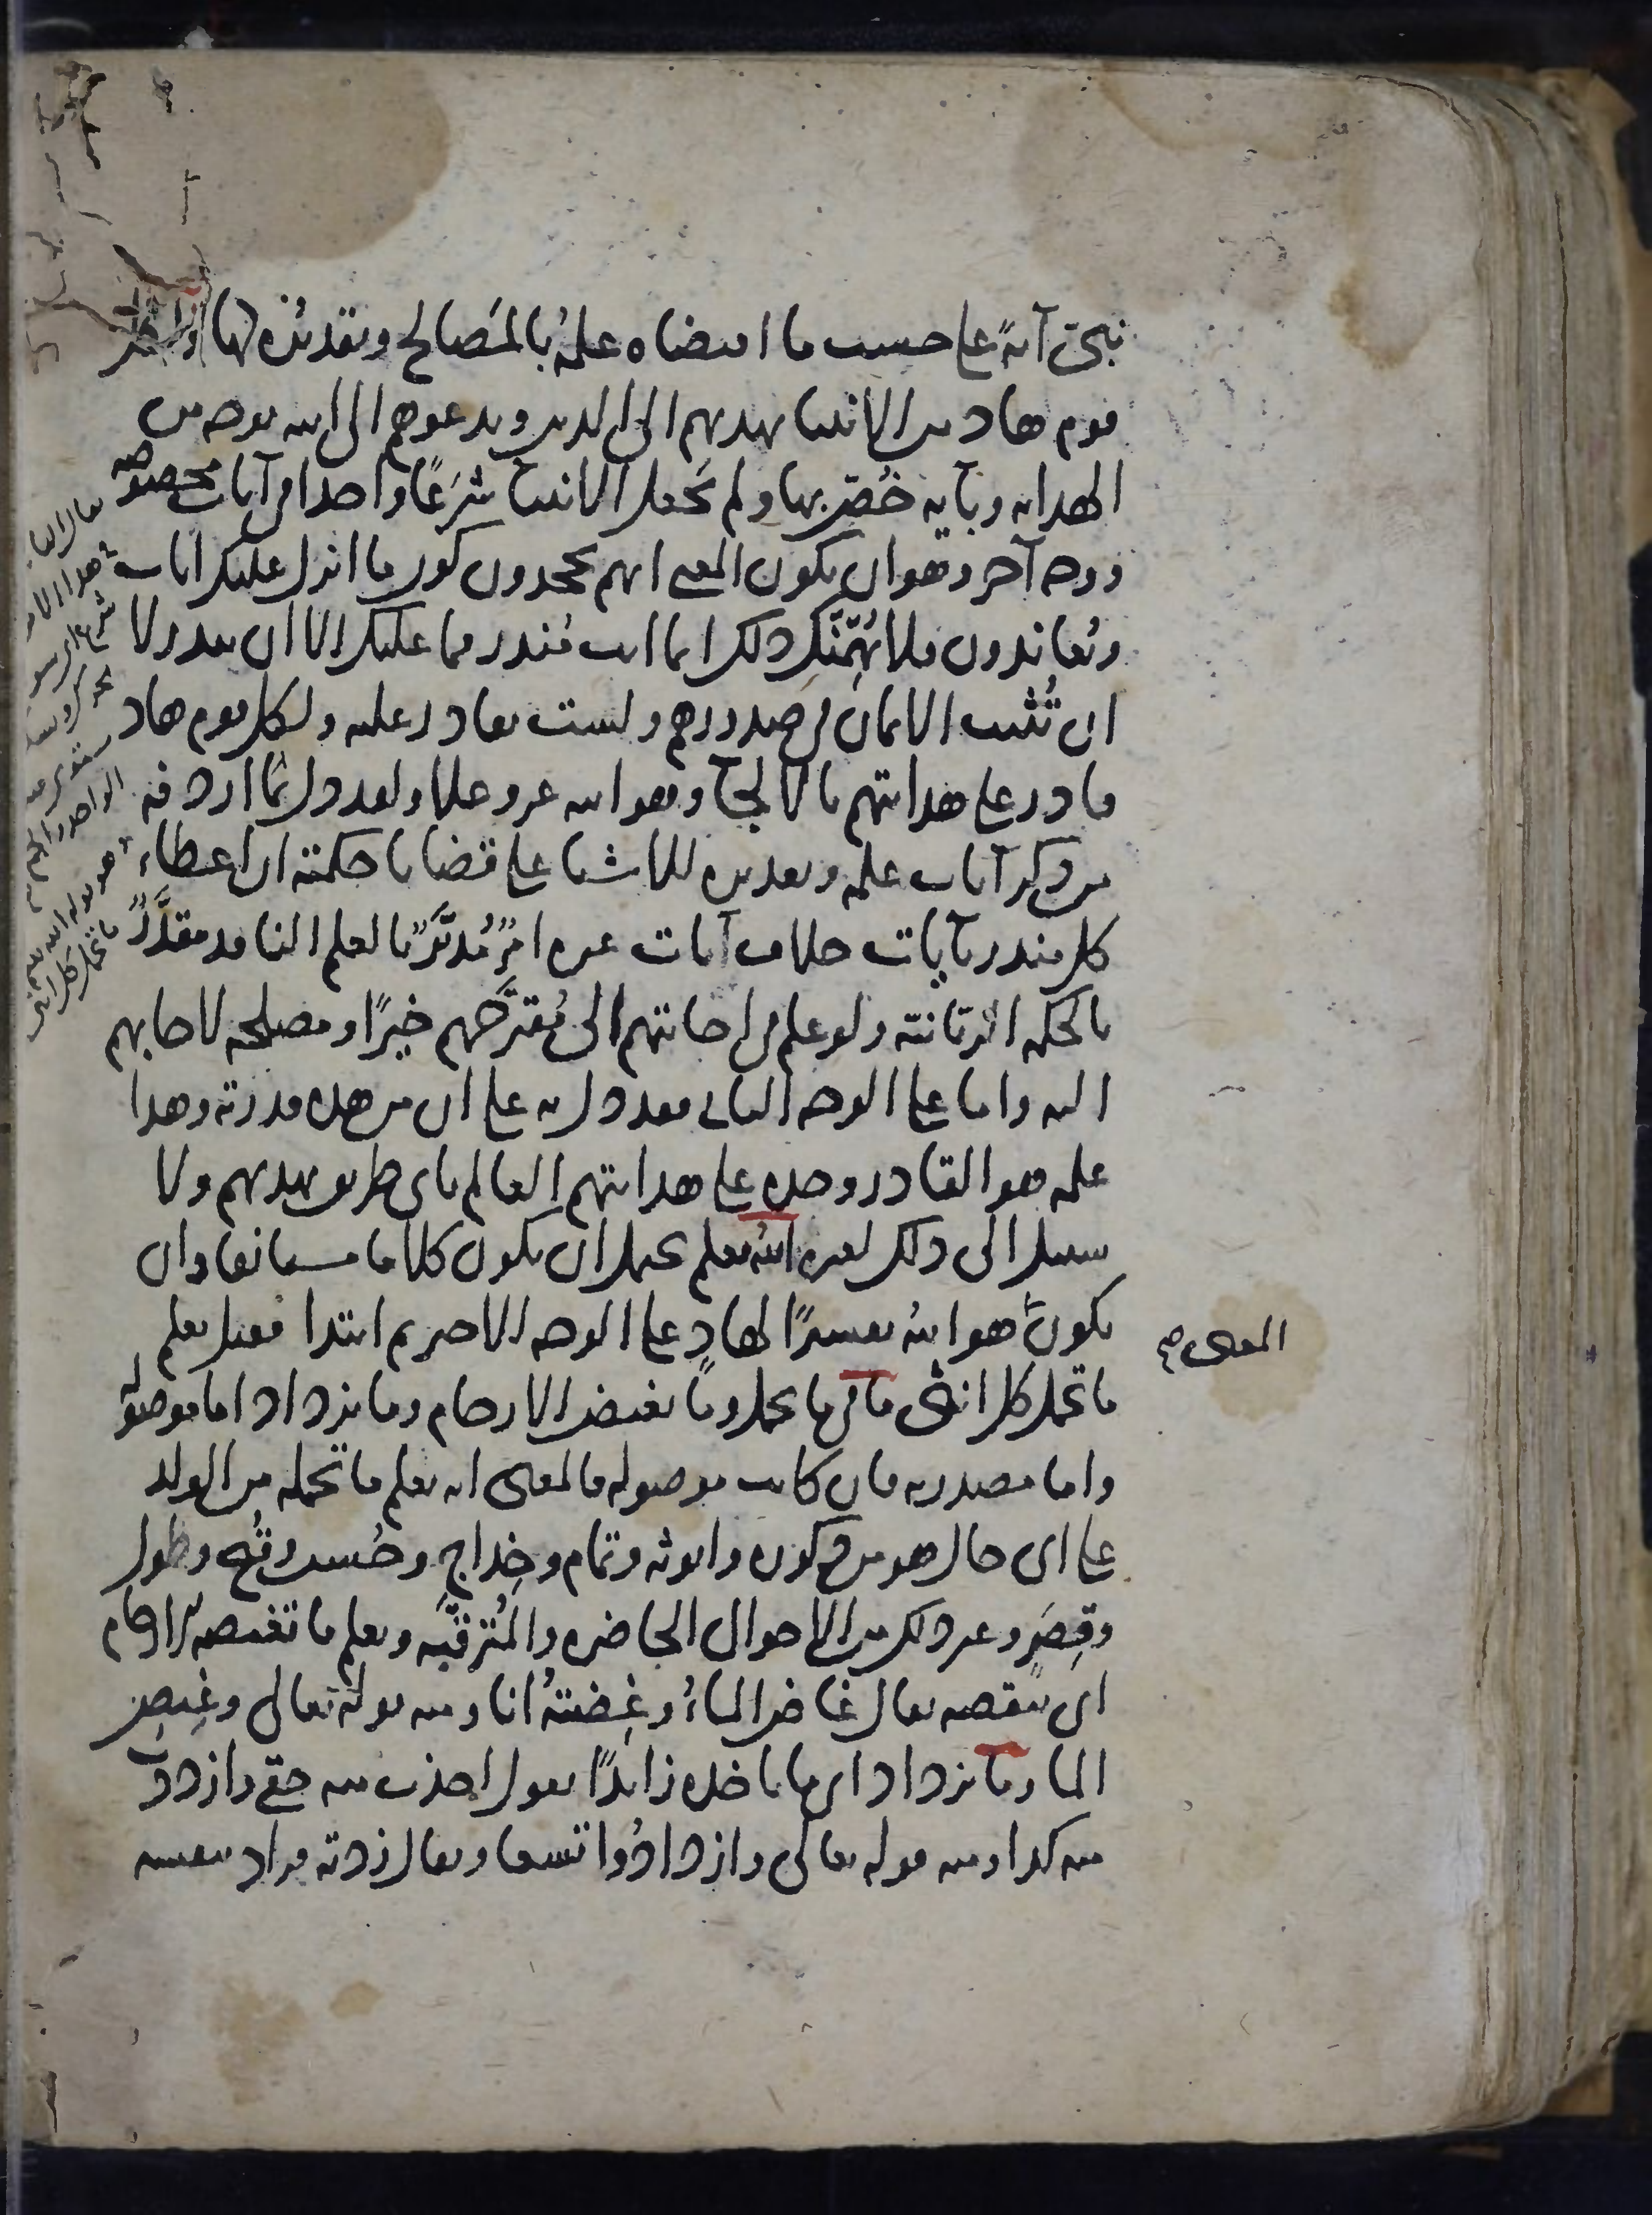 نبي آية على حسب ما اقتضاه علمه بالمصالح وتقديره لها ولكل
قوم هاد من الانبيا يهديهم الى الدين ويدعوهم الى الله بوجه من
الهداية وبآية خُصّ بها ولم يجعل الانبيا شَرَعًا واحدا في آيات مخصوصة
ووجه آخر وهو ان يكون المعنى انهم يجحدون كون ما انزل عليك ايات
ويُعاندون فلا يُهِمَّنَّك ذلك انما انت مُنذر فما عليك الا ان تنذر لا
ان تُثبت الايمان في صدورهم ولست بقادر عليه ولكل قوم هاد
قادر على هدايتهم بالالجآ وهو الله عز وعلا ولقد دل بما اردفه
من ذكر آيات علمه وتقديره للاشيا على قضايا حكمته ان اعطاء
كل منذر آيات خلاف آيات غيره امرٌ مُدبَّرٌ بالعلم النافذ مقدَّرٌ
بالحكمة الربانية ولو علم في اجابتهم الى مُقترَحهم خيرًا ومصلحة لاجابهم
اليه واما على الوجه الثاني فقد دل به على ان من هذه قدرته وهذا
علمه هو القادر وحده على هدايتهم العالم باي طريق يهديهم ولا
سبيل الى ذلك لغيره الله يعلم يحتمل ان يكون كلاما مستانفا وان
يكون هو الله تفسيرًا لهادٍ على الوجه الاخير ثم ابتدا فقيل يعلم
المعنى صح
ما تحمل كل انثى ما في ما تحمل وما تغيض الارحام وما تزداد اما موصولة
واما مصدرية فان كانت موصولة فالمعنى انه يعلم ما تحمله من الولد
على اي حال هو من ذكورة وانوثة وتمام وخِداجٍ وحُسن وقُبح وطول
وقِصَرٍ وغير ذلك من الاحوال الحاضرة والمُترقّبة ويعلم ما تغيضه الارحام
اي تنقصه يقال غاض الماءُ وغِضتُه انا ومنه قوله تعالى وغِيض
الما وما تزداد اي ما تاخذه زائدًا تقول اخذت منه حقي وازددت
منه كذا ومنه قوله تعالى وازدادُوا تسعا ويقال زدته فزاد بنفسه